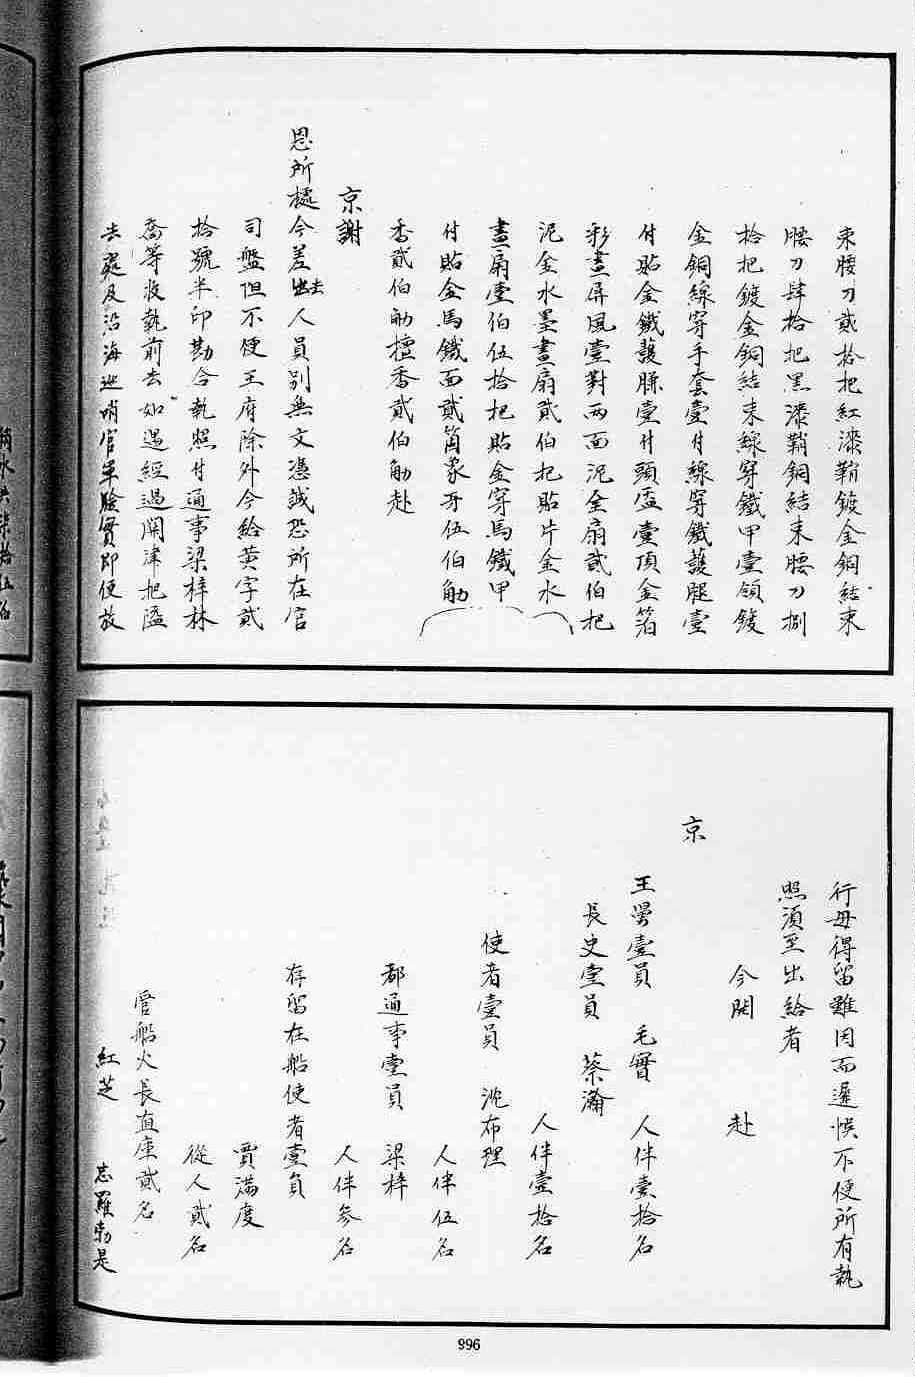 束腰刀貳拾把紅漆鞘鍍金銅結束
腰刀肆拾把黑漆鞘銅結束腰刀捌
拾把鍍金銅結束線穿鐵甲壹領鍍
金銅線穿手套壹付線穿鐵護腿壹
付貼金鐵護膝壹付頭盔壹頂金箔
彩畫屏風壹對兩面泥金扇貳伯把
泥金水墨畫扇貳伯把貼片金水
畫扇壹伯伍拾把貼金穿馬鐵甲
付貼金馬鐵面貳箇象牙伍伯觔
香貳伯觔檀香貳伯觔赴
京謝
恩所據今差去人員別無文憑誠恐所在官
司盤阻不便王府除外今給黃字貳
拾號半印勘合執照付通事梁梓林
喬等收執前去如遇經過關津把隘
去處及沿海巡哨官軍驗實即便放
行毋得留難因而遲悞不便所有執
照須至出給者
今開 赴
京
王舅壹員 毛實 人伴壹拾名
長史壹員 蔡瀚
人伴壹拾名
使者壹員 沈布理
人伴伍名
都通事壹員 梁梓
人伴參名
存留在船使者壹員
賈滿度
從人貳名
管船火長直庫貳名
紅芝 志羅勃是
996